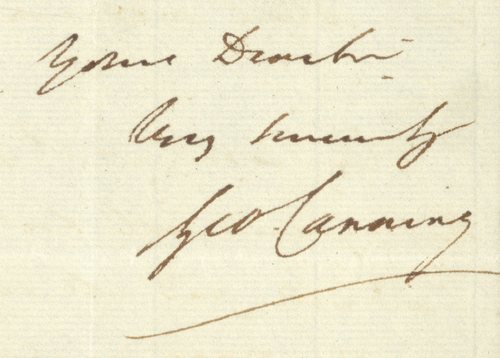 Yours Dear Sir
Very sincerely
Geo. Canning